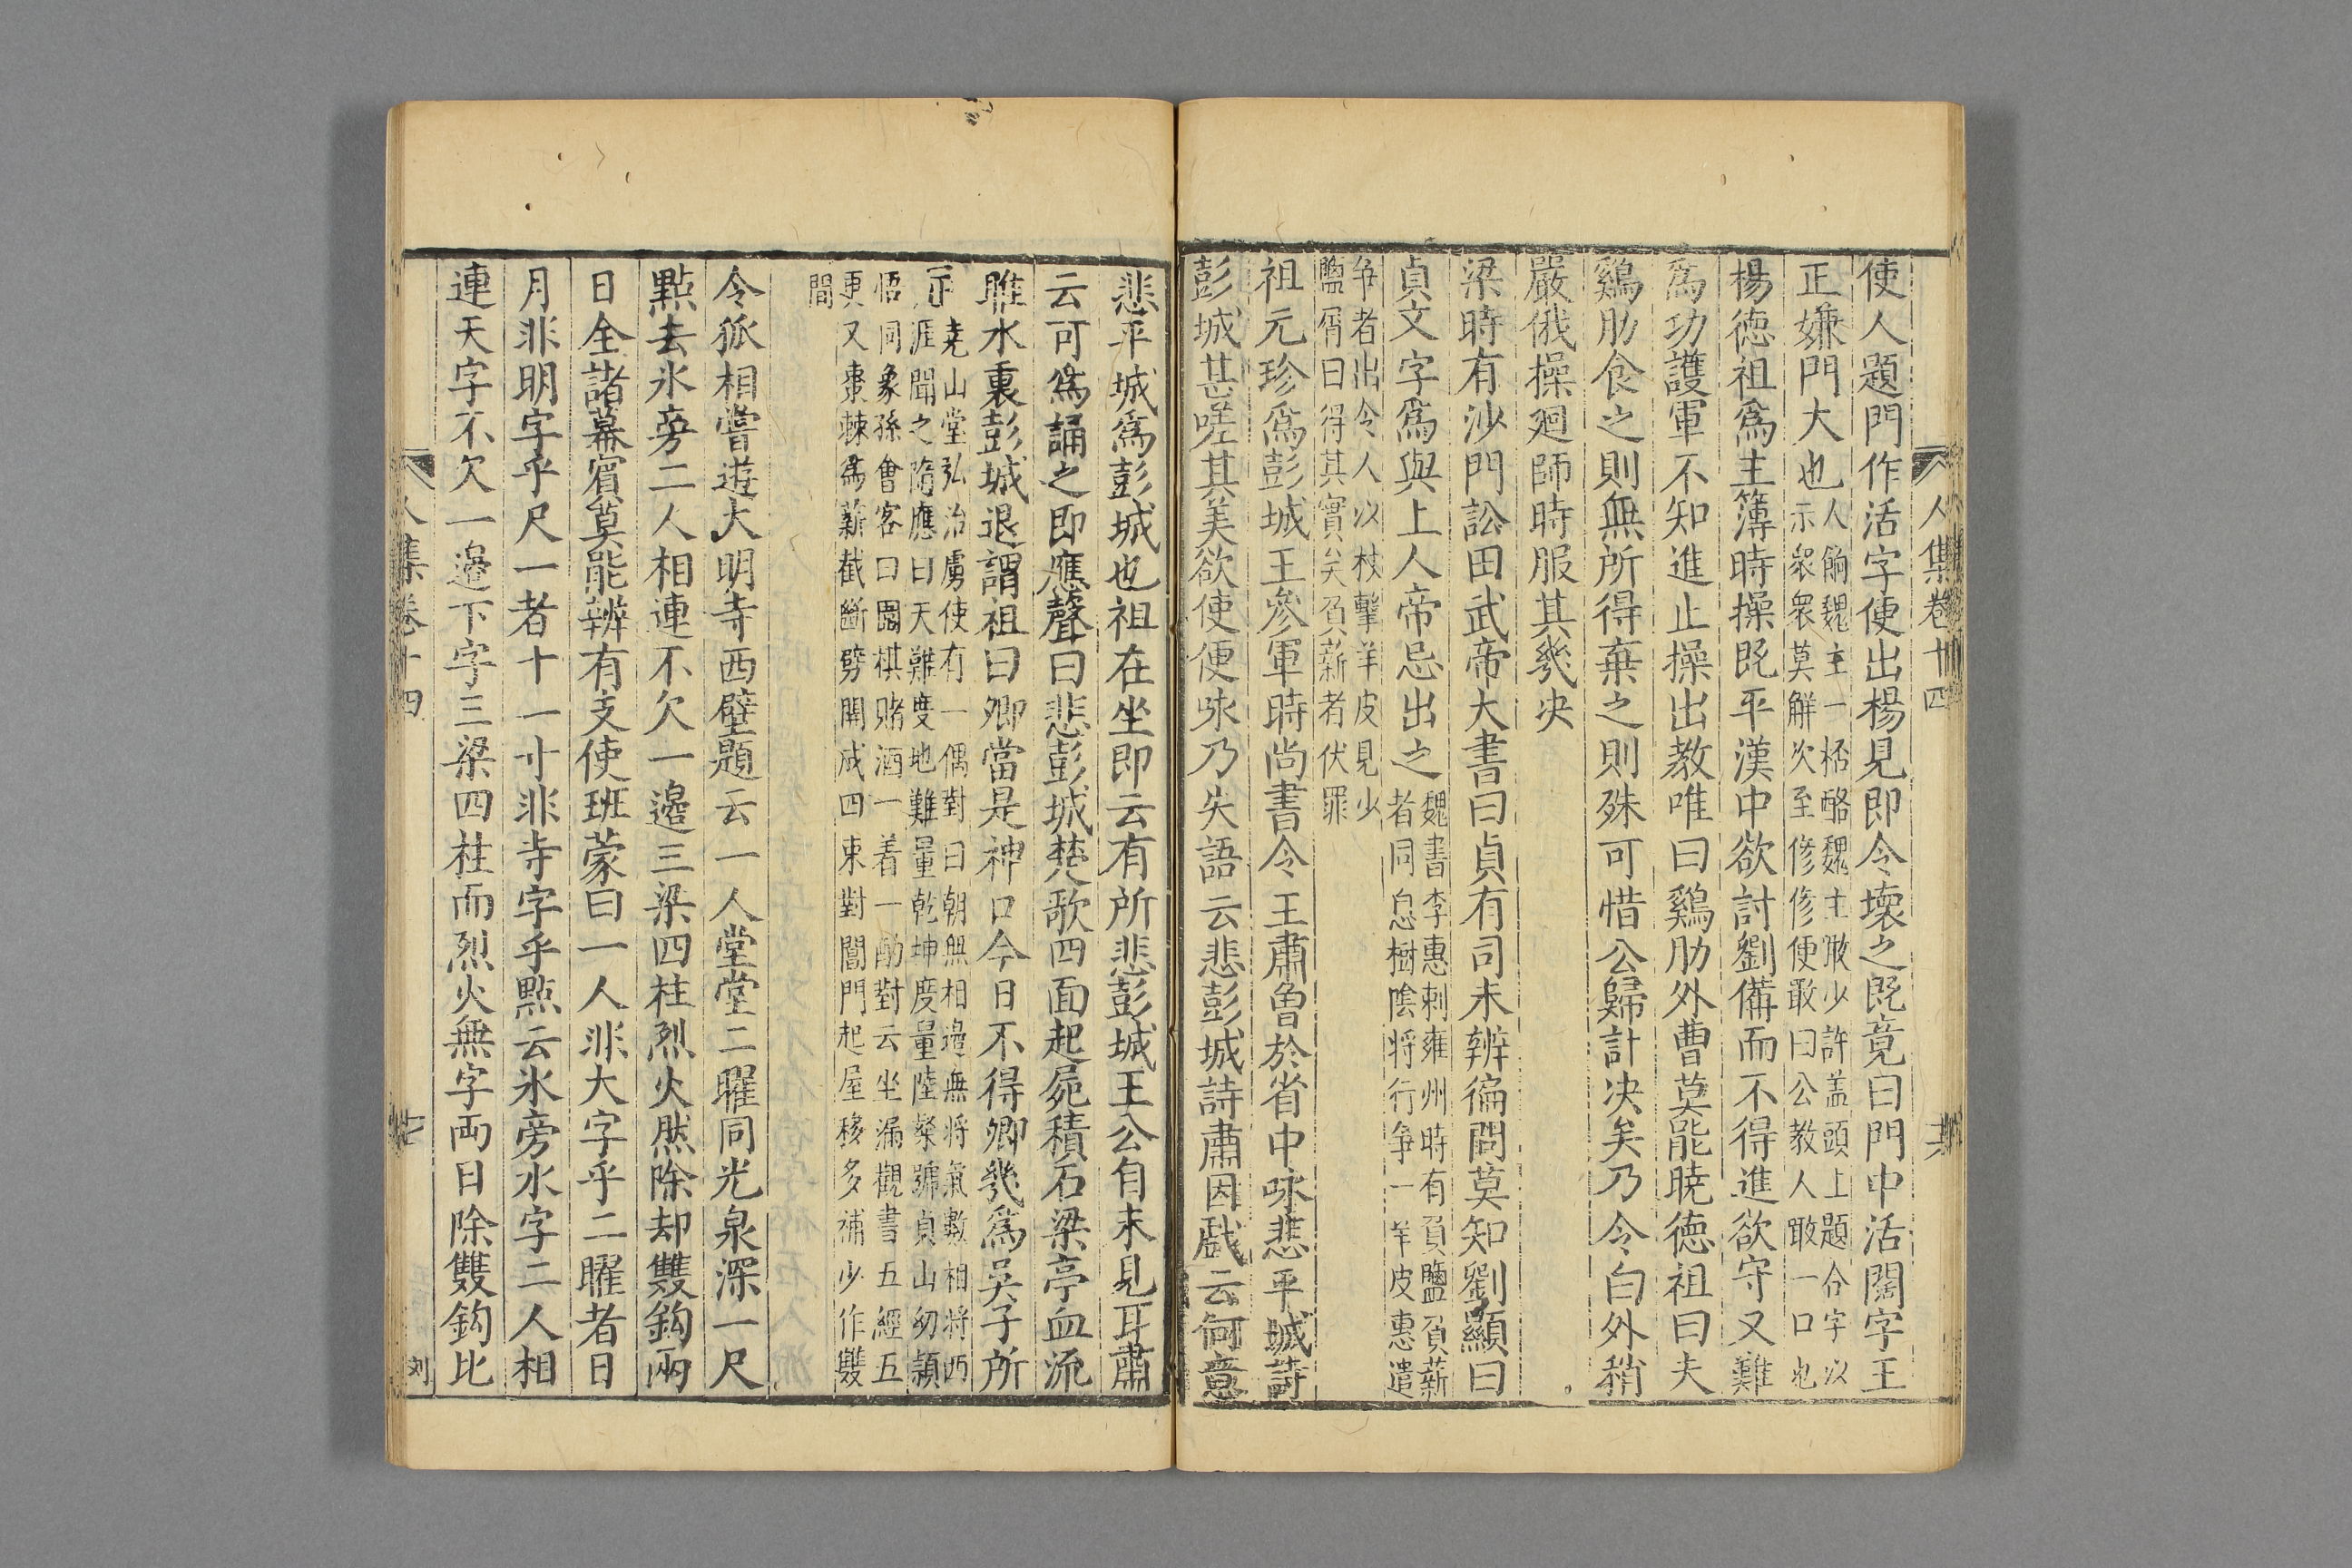 人集卷十四
使人題門作活字便出楊見即令壞之既竟曰門中活闊字王
正嫌門大也
人餉魏主一桮酪魏主噉少許盖頭上題合字以
示衆衆莫解次至修修便敢曰公教人噉一口也
楊德祖爲主簿時操既平漢中欲討劉備而不得進欲守又難
爲功護軍不知進止操出教唯曰鷄肋外曹莫能曉德祖曰夫
鷄肋食之則無所得棄之則殊可惜公歸計决矣乃令白外稍
嚴俄操廻師時服其幾决
梁時有沙門訟田武帝大書曰貞有司未辨徧問莫知劉顯曰
貞文字爲與上人帝忌出之
魏書李惠刺雍州時有負鹽負薪
者同息樹陰将行争一羊皮惠遣
争者出令人以杖擊羊皮見少
鹽屑曰得其實矣負薪者伏罪
祖元珍爲彭城王參軍時尚書令王肅曾於省中咏悲平城詩
彭城甚嗟其美欲使便咏乃失語云悲彭城詩肅因戲云何意
悲平城爲彭城也祖在坐即云有所悲彭城王公自未見耳肅
云可爲誦之即應聲曰悲彭城楚歌四面起屍積石梁亭血流
睢水裏彭城退謂祖曰卿當是神口今日不得卿幾爲吴子所
屈
堯山堂弘治虜使有一偶對曰朝無相邉無将氣數相将西
涯聞之隋應曰天難度地難量乾坤度量陸粲號貞山幼穎
悟同象孫會客曰圍棋賭酒一着一酌對云坐漏觀書五經五
更又棗棘爲薪截斷劈開成四束對閶門起屋移多補少作雙
間
令狐相嘗遊大明寺西壁題云一人堂堂二曜同光泉深一尺
點去氷旁二人相連不欠一邉三梁四柱烈火然除却雙鈎兩
日全諸幕賓莫能辨有支使班蒙曰一人非大字乎二曜者日
月非明字乎尺一者十一寸非寺字乎點云氷旁水字二人相
連天字不欠一邉下字三梁四柱而烈火無字兩日除雙鈎比
人集卷十四
七
刘